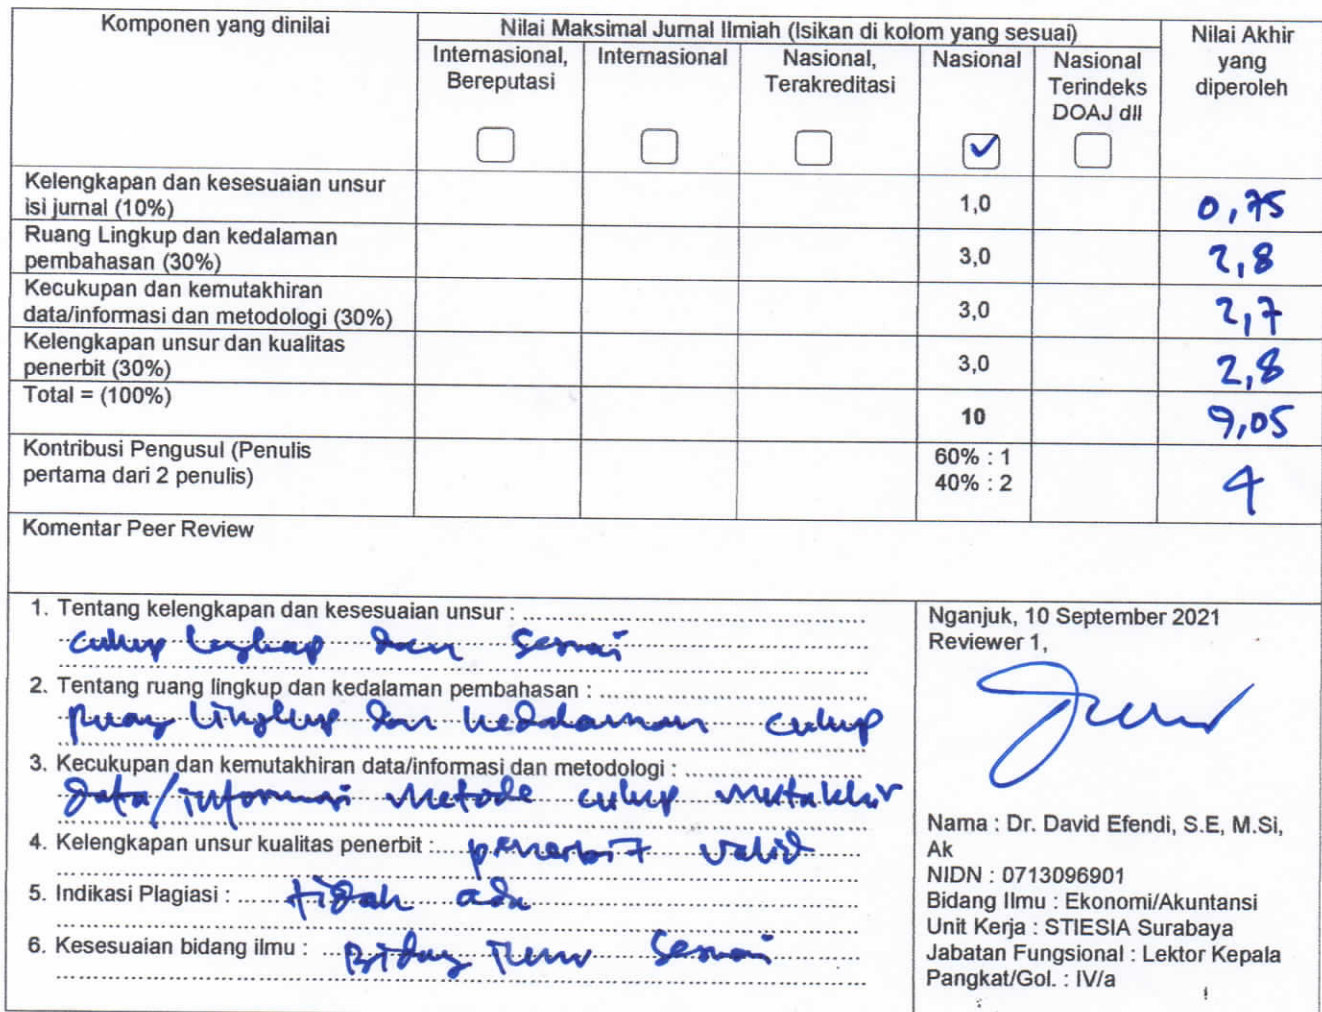 Komponen yang dinilai
Nilai Maksimal Jurnal Ilmiah (Isikan di kolom yang sesuai)
Nilai Akhir
yang
diperoleh
Internasional,
Bereputasi
Internasional
Nasional,
Terakreditasi
Nasional
Nasional
Terindeks
DOAJ dll
Kelengkapan dan kesesuaian unsur
isi jurnal (10%)
1,0
0,75
Ruang Lingkup dan kedalaman
pembahasan (30%)
3,0
2,8
Kecukupan dan kemutakhiran
data/informasi dan metodologi (30%)
3,0
2,7
Kelengkapan unsur dan kualitas
penerbit (30%)
3,0
2,8
Total = (100%)
10
9,05
Kontribusi Pengusul (Penulis
pertama dari 2 penulis)
60% : 1
40% : 2
4
Komentar Peer Review
1. Tentang kelengkapan dan kesesuaian unsur :
cukup lengkap dan sesuai
2. Tentang ruang lingkup dan kedalaman pembahasan :
ruang lingkup dan kedalaman cukup
3. Kecukupan dan kemutakhiran data/informasi dan metodologi :
data/informasi metode cukup mutakhir
4. Kelengkapan unsur kualitas penerbit : penerbit valid
5. Indikasi Plagiasi : tidak ada
6. Kesesuaian bidang ilmu : Bidang Ilmu sesuai
Nganjuk, 10 September 2021
Reviewer 1,
Nama : Dr. David Efendi, S.E, M.Si,
Ak
NIDN : 0713096901
Bidang Ilmu : Ekonomi/Akuntansi
Unit Kerja : STIESIA Surabaya
Jabatan Fungsional : Lektor Kepala
Pangkat/Gol. : IV/a